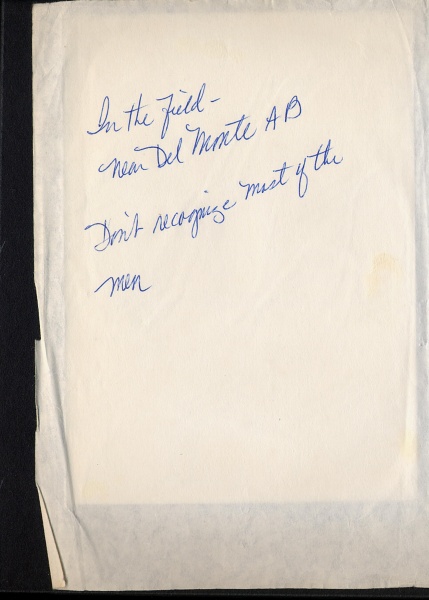 In the field -
near Del Monte AB
Don't recognize most of the
men